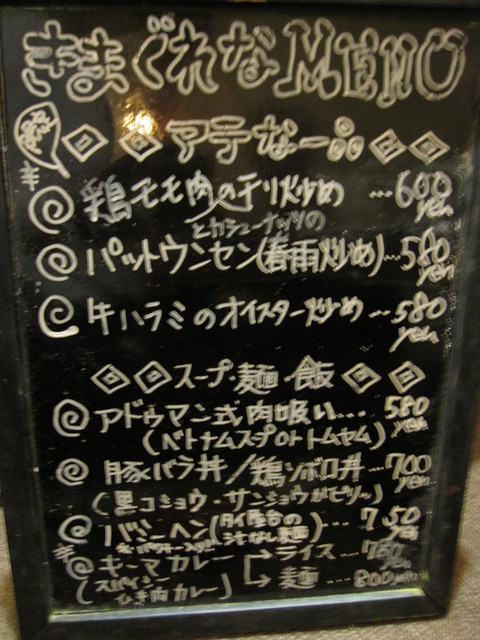 きまぐれなMENU
アテなー
鶏モモ肉のチリ炒め …600yen
とカシューナッツの
パットウンセン(春雨炒め)…580yen
牛ハラミのオイスター炒め …580yen
スープ・麺・飯
アドゥマン式肉吸い… 580yen
(ベトナムスープ or トムヤム)
豚バラ丼/鶏ソボロ丼 …700yen
(黒コショウ・サンショウがピリッ)
バミーヘン(タイ屋台の汁なし麺)… 750yen
辛
キーマカレー →ライス … 750yen
(スパイシーひき肉カレー) →麺 … 800yen